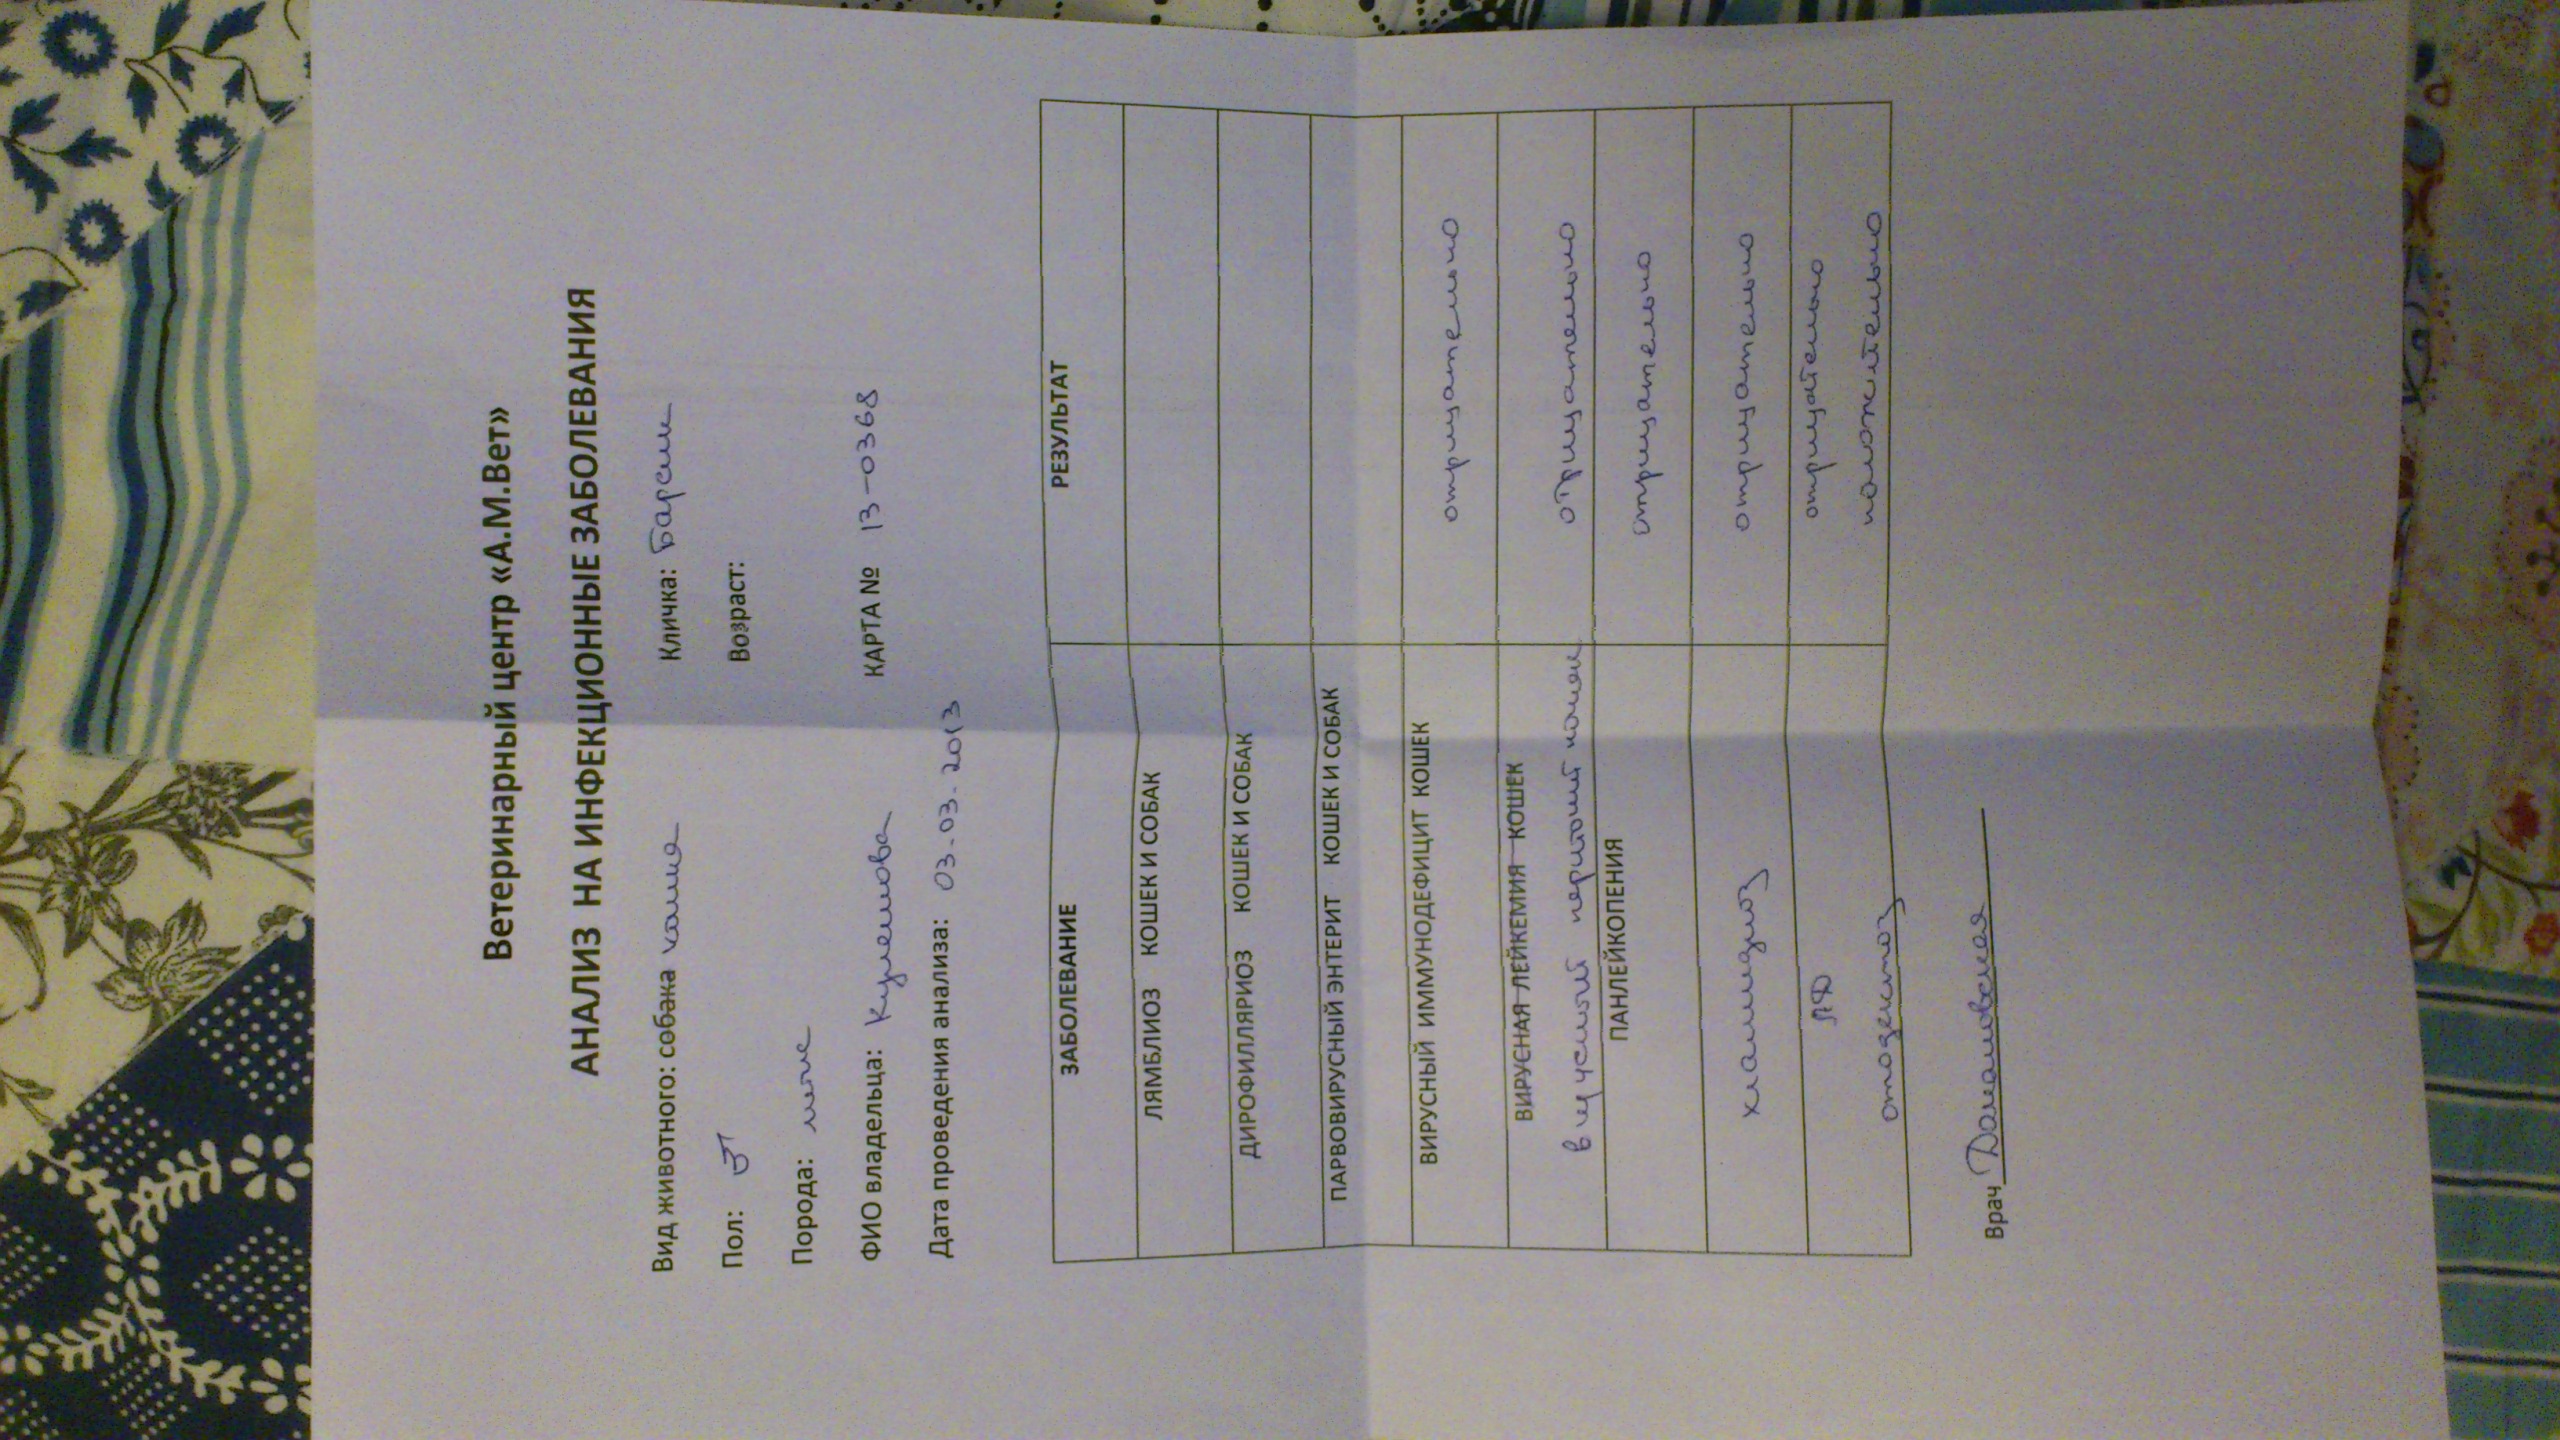 Ветеринарный центр «А.М.Вет»
АНАЛИЗ НА ИНФЕКЦИОННЫЕ ЗАБОЛЕВАНИЯ
Вид животного: собака кошка Кличка: Барсик
Пол: ♂ Возраст:
Порода: метис
ФИО владельца: Кулешова КАРТА № 13-0368
Дата проведения анализа: 03.03.2013
ЗАБОЛЕВАНИЕ РЕЗУЛЬТАТ
ЛЯМБЛИОЗ КОШЕК И СОБАК
ДИРОФИЛЛЯРИОЗ КОШЕК И СОБАК
ПАРВОВИРУСНЫЙ ЭНТЕРИТ КОШЕК И СОБАК
ВИРУСНЫЙ ИММУНОДЕФИЦИТ КОШЕК отрицательно
ВИРУСНАЯ ЛЕЙКЕМИЯ КОШЕК
вирусный перитонит кошек отрицательно
ПАНЛЕЙКОПЕНИЯ отрицательно
хламидиоз отрицательно
ЛД отрицательно
отодектоз положительно
Врач Домановская